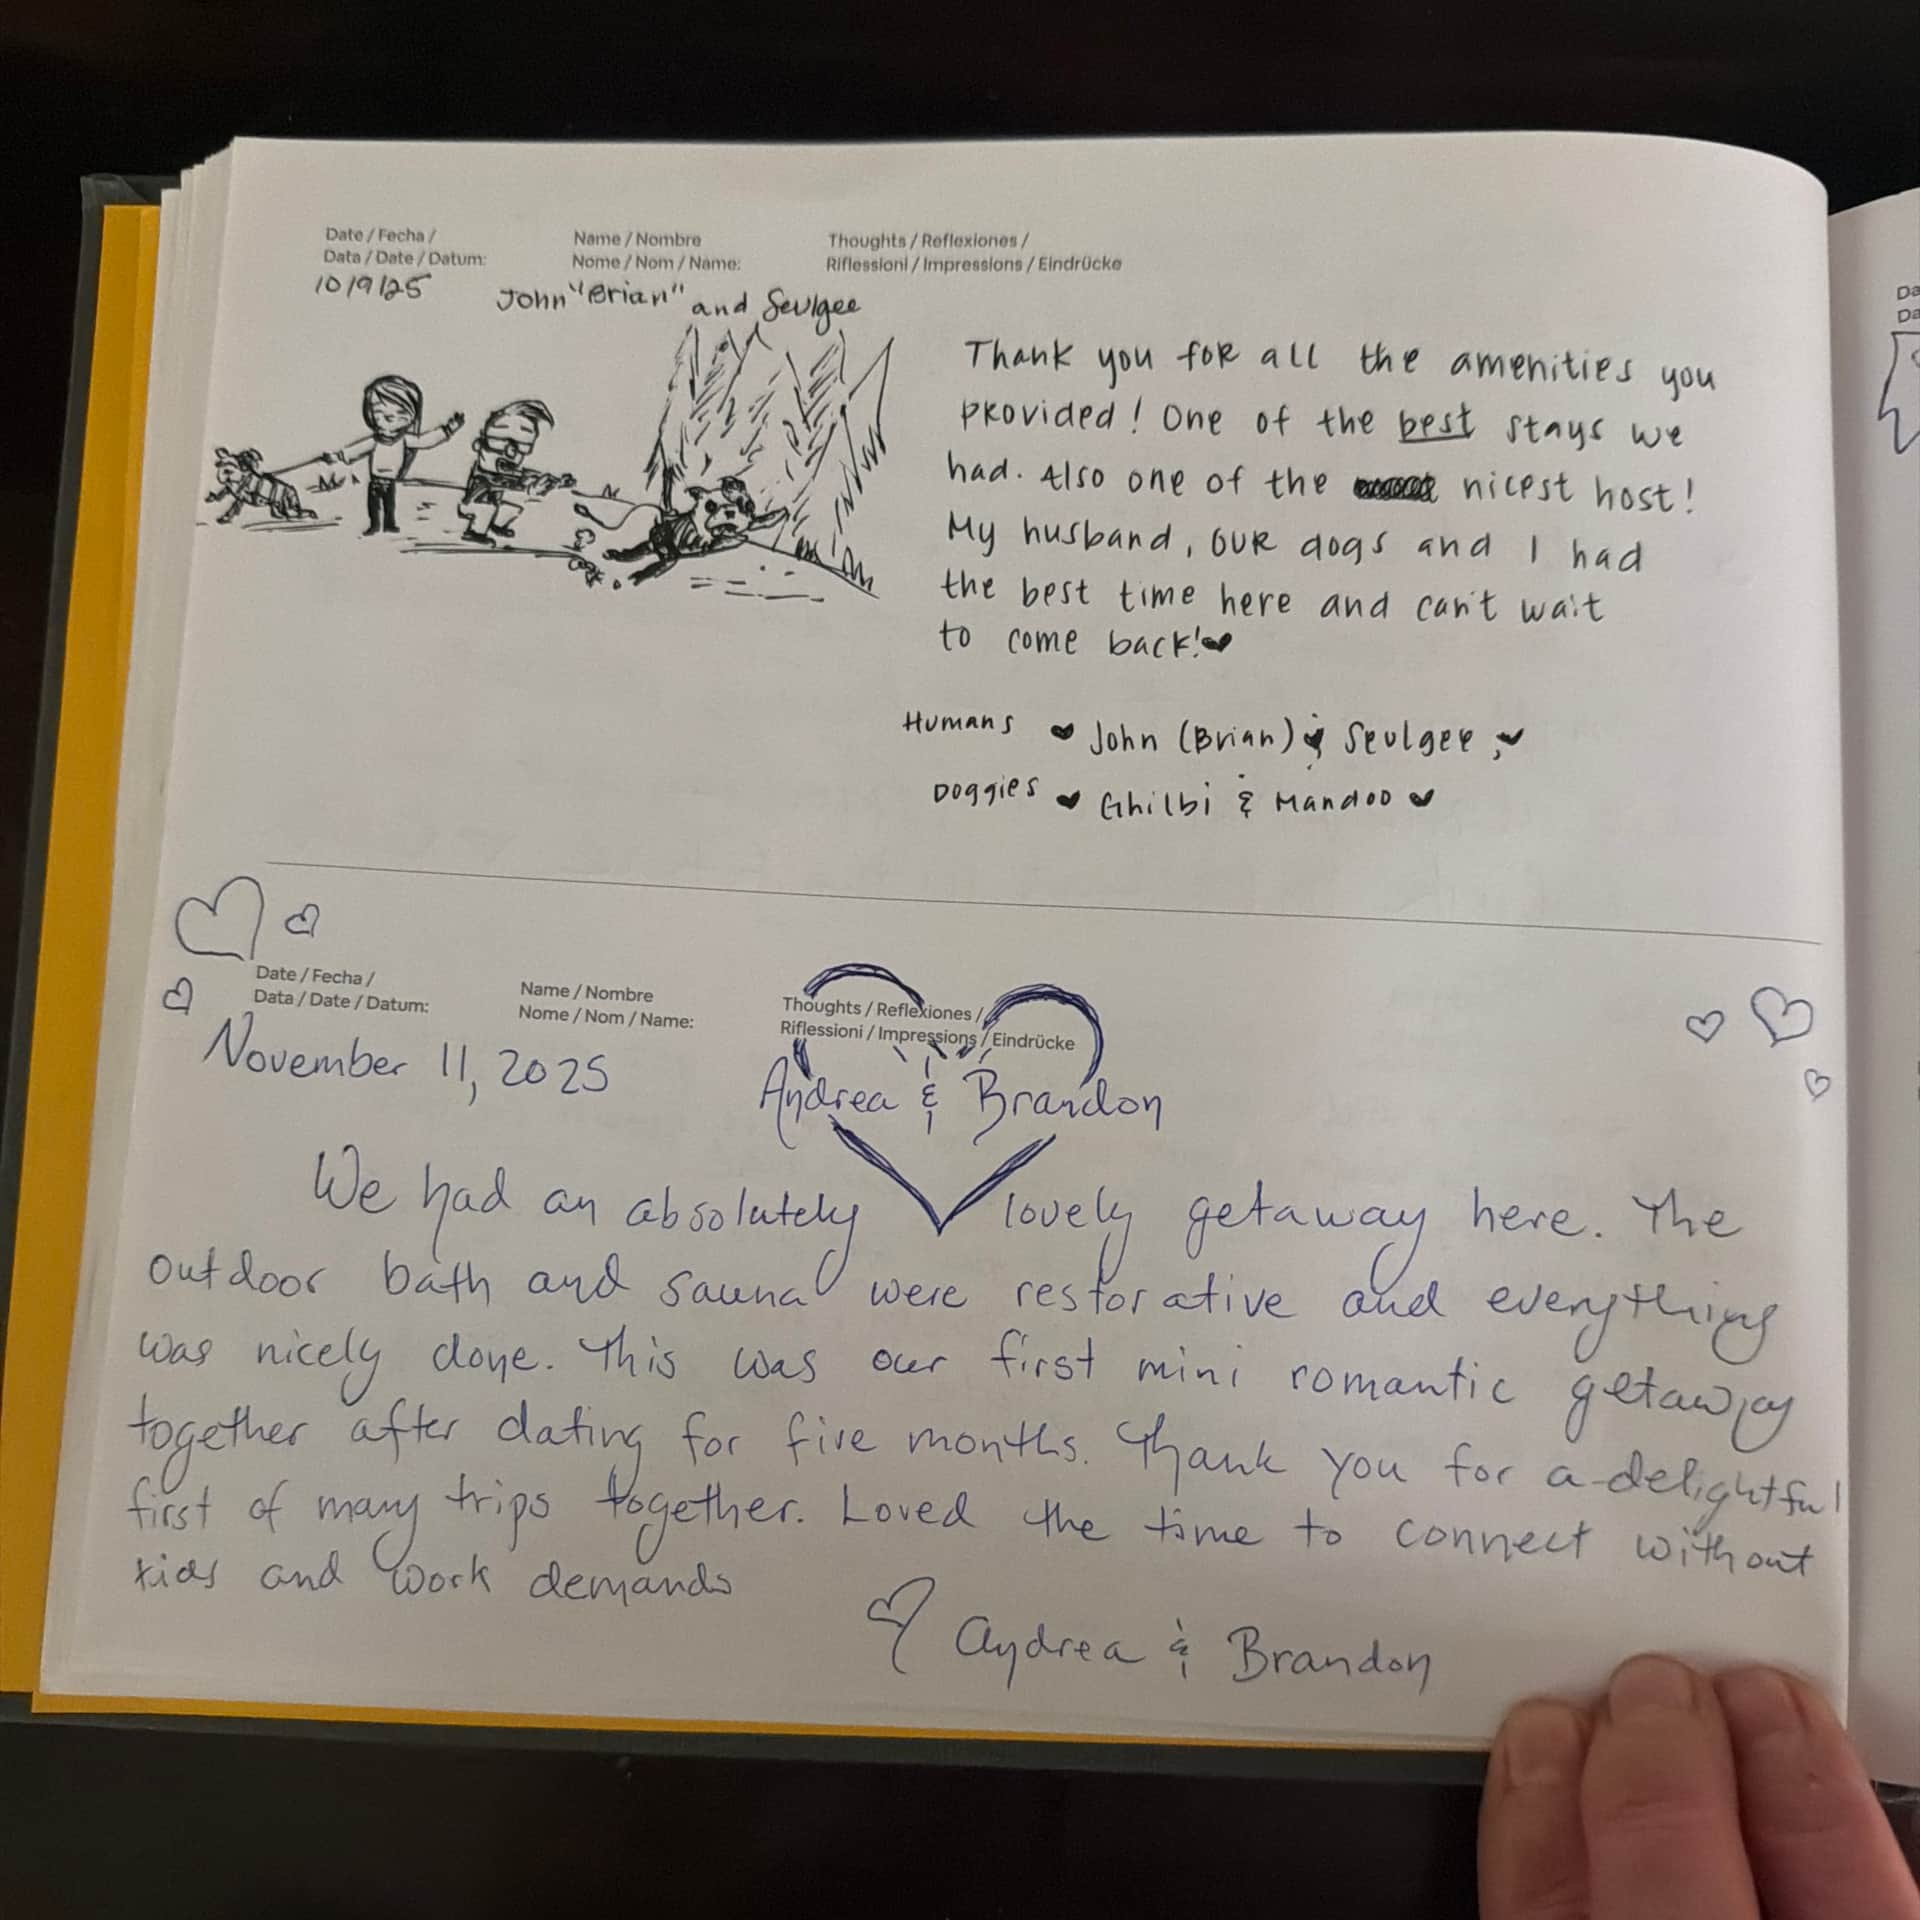 Date / Fecha /
Data / Date / Datum:
10/9/25
Name / Nombre
Nome / Nom / Name:
John "Brian" and Seulgee
Thoughts / Reflexiones /
Riflessioni / Impressions / Eindrücke
Thank you for all the amenities you
provided! One of the best stays we
had. Also one of the nicest host!
My husband, our dogs and I had
the best time here and can't wait
to come back!
Humans John (Brian) & Seulgee
Doggies Ghilbi & Mandoo
Date / Fecha /
Data / Date / Datum:
November 11, 2025
Name / Nombre
Nome / Nom / Name:
Thoughts / Reflexiones /
Riflessioni / Impressions / Eindrücke
Andrea & Brandon
We had an absolutely lovely getaway here. The
outdoor bath and sauna were restorative and everything
was nicely done. This was our first mini romantic getaway
together after dating for five months. Thank you for a delightful
first of many trips together. Loved the time to connect without
kids and work demands
Andrea & Brandon
Da
Da